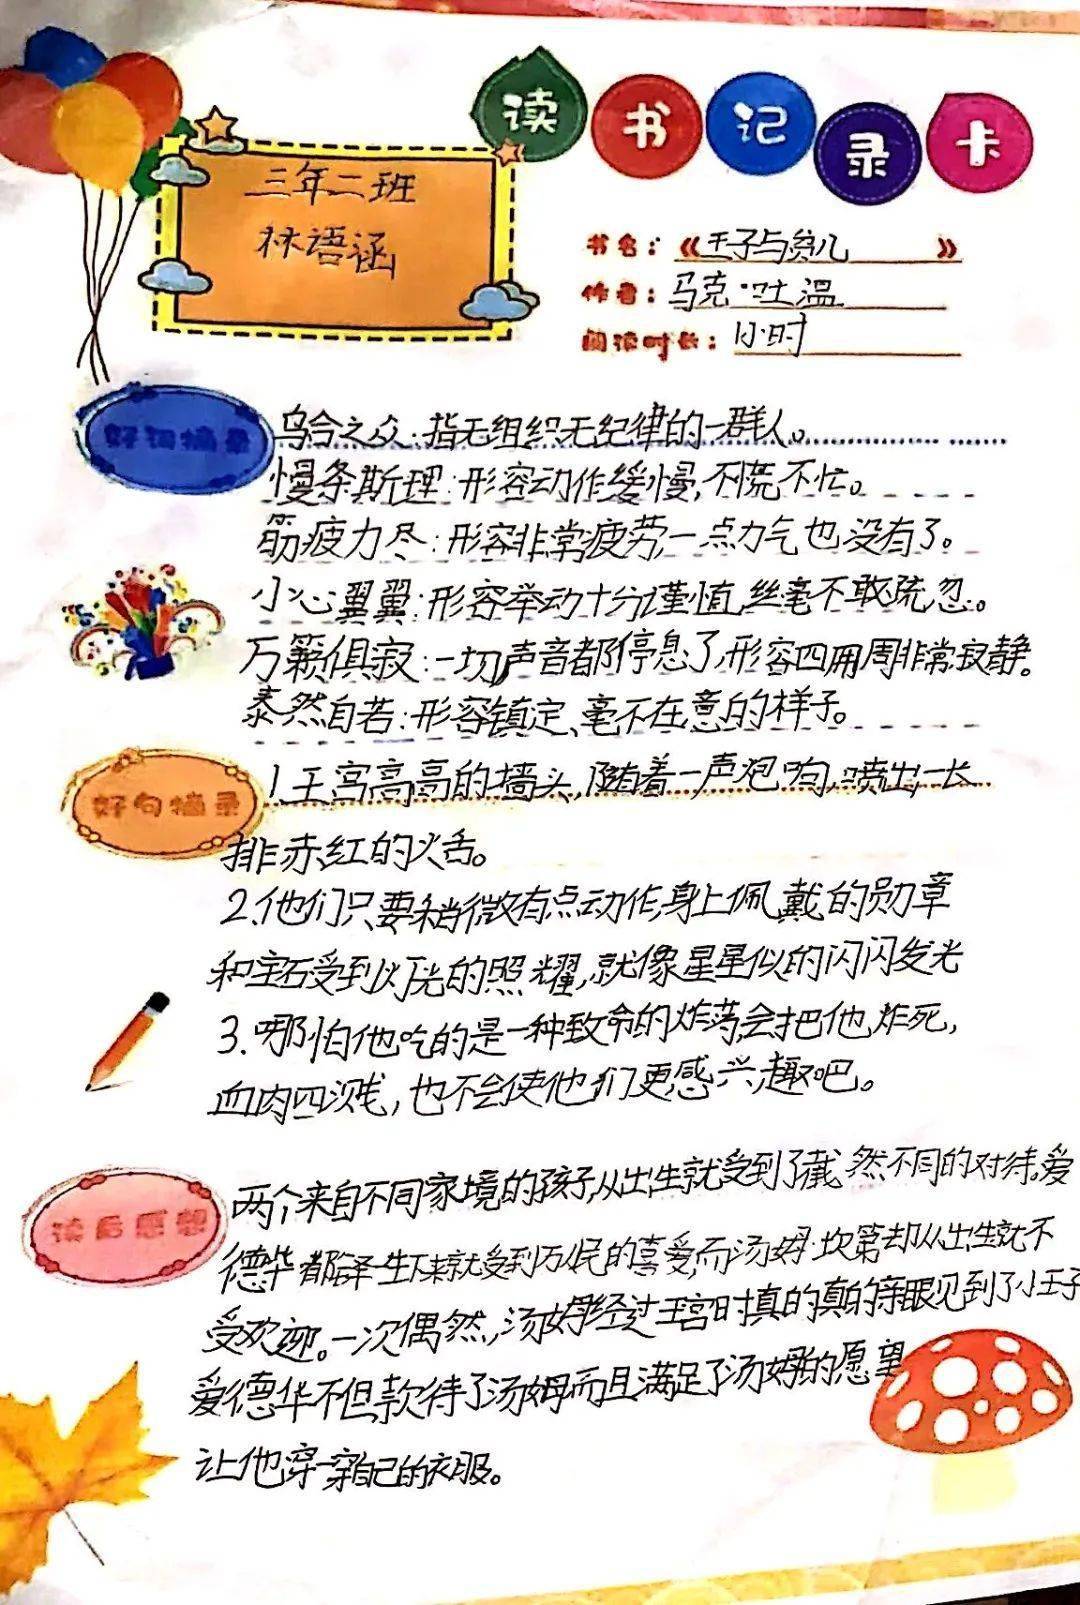 读书记录卡
三年二班
林语涵
书名：《王子与贫儿》
作者：马克·吐温
阅读时长：1小时
好词摘录
乌合之众：指无组织无纪律的一群人。
慢条斯理：形容动作缓慢，不慌不忙。
筋疲力尽：形容非常疲劳，一点力气也没有了。
小心翼翼：形容举动十分谨慎，丝毫不敢疏忽。
万籁俱寂：一切声音都停息了，形容四周非常寂静。
泰然自若：形容镇定、毫不在意的样子。
好句摘录
1.王宫高高的墙头，随着一声炮响，喷出一长
排赤红的火舌。
2.他们只要稍微有点动作，身上佩戴的勋章
和宝石受到灯光的照耀，就像星星似的闪闪发光
3.哪怕他吃的是一种致命的炸药，会把他炸死，
血肉四溅，也不会使他们更感兴趣吧。
读后感想
两个来自不同家境的孩子，从出生就受到了截然不同的对待。爱
德华·都铎一生下来就受到万民的喜爱，而汤姆·坎第却从出生就不
受欢迎。一次偶然，汤姆经过王宫时真的真的亲眼见到了小王子
爱德华不但款待了汤姆而且满足了汤姆的愿望
让他穿一穿自己的衣服。